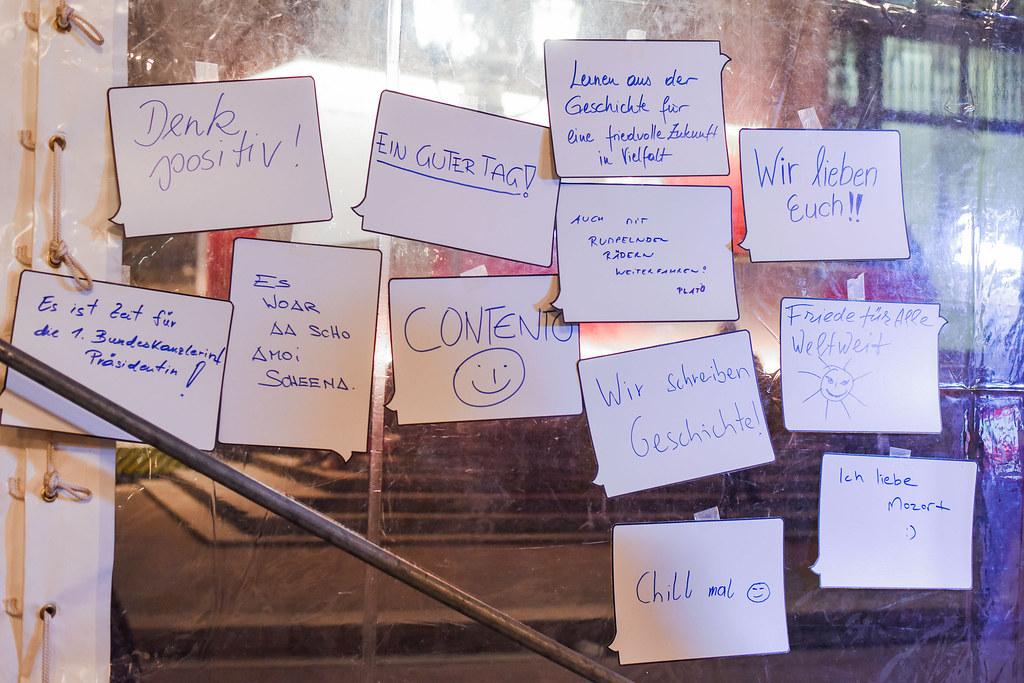 Denk
positiv!
EIN GUTER TAG!
Lernen aus der
Geschichte für
eine friedvolle Zukunft
in Vielfalt
Wir lieben
Euch!!
AUCH MIT
RUMPELNDEN
RÄDERN
WEITERFAHREN!
PLATO
Es ist Zeit für
die 1. Bundeskanzlerin/
Präsidentin!
ES
WOAR
DA SCHO
AMOi
SCHEENA.
CONTENTO
Friede für Alle
Weltweit
Wir schreiben
Geschichte!
Ich liebe
Mozart
:)
Chill mal